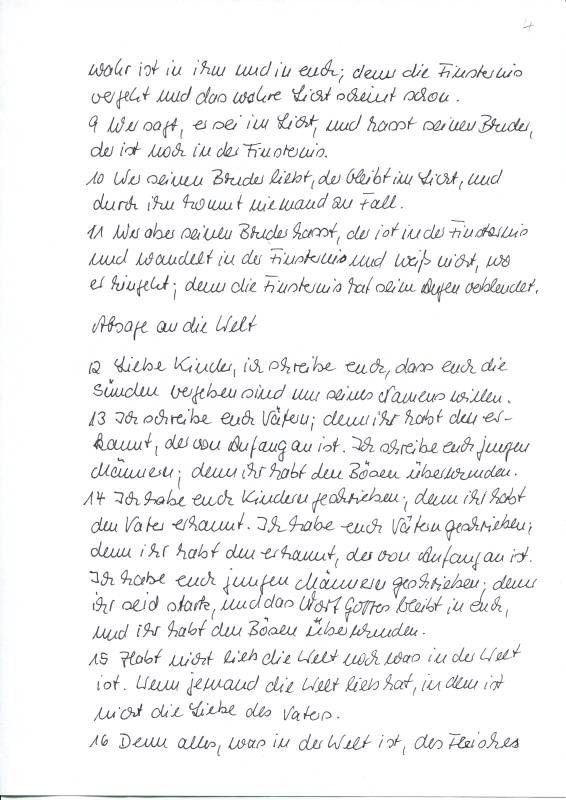 4
wahr ist in ihm und in euch; denn die Finsternis
vergeht und das wahre Licht scheint schon.
9 Wer sagt, er sei im Licht, und hasst seinen Bruder,
der ist noch in der Finsternis.
10 Wer seinen Bruder liebt, der bleibt im Licht, und
durch ihn kommt niemand zu Fall.
11 Wer aber seinen Bruder hasst, der ist in der Finsternis
und wandelt in der Finsternis und weiß nicht, wo
er hingeht; denn die Finsternis hat seine Augen verblendet.
Absage an die Welt
12 Liebe Kinder, ich schreibe euch, dass euch die
Sünden vergeben sind um seines Namens willen.
13 Ich schreibe euch Vätern; denn ihr habt den er-
kannt, der von Anfang an ist. Ich schreibe euch jungen
Männern; denn ihr habt den Bösen überwunden.
14 Ich habe euch Kindern geschrieben; denn ihr habt
den Vater erkannt. Ich habe euch Vätern geschrieben;
denn ihr habt den erkannt, der von Anfang an ist.
Ich habe euch jungen Männern geschrieben; denn
ihr seid stark, und das Wort Gottes bleibt in euch,
und ihr habt den Bösen überwunden.
15 Habt nicht lieb die Welt noch was in der Welt
ist. Wenn jemand die Welt lieb hat, in dem ist
nicht die Liebe des Vaters.
16 Denn alles, was in der Welt ist, des Fleisches